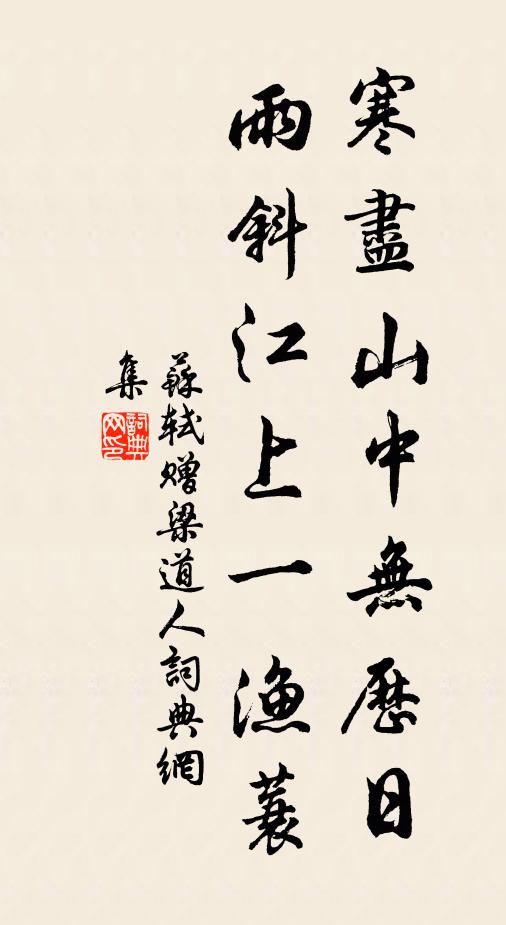 寒盡山中無歷日
雨斜江上一漁蓑
蘇軾贈梁道人詞典網
集
詞典
网印